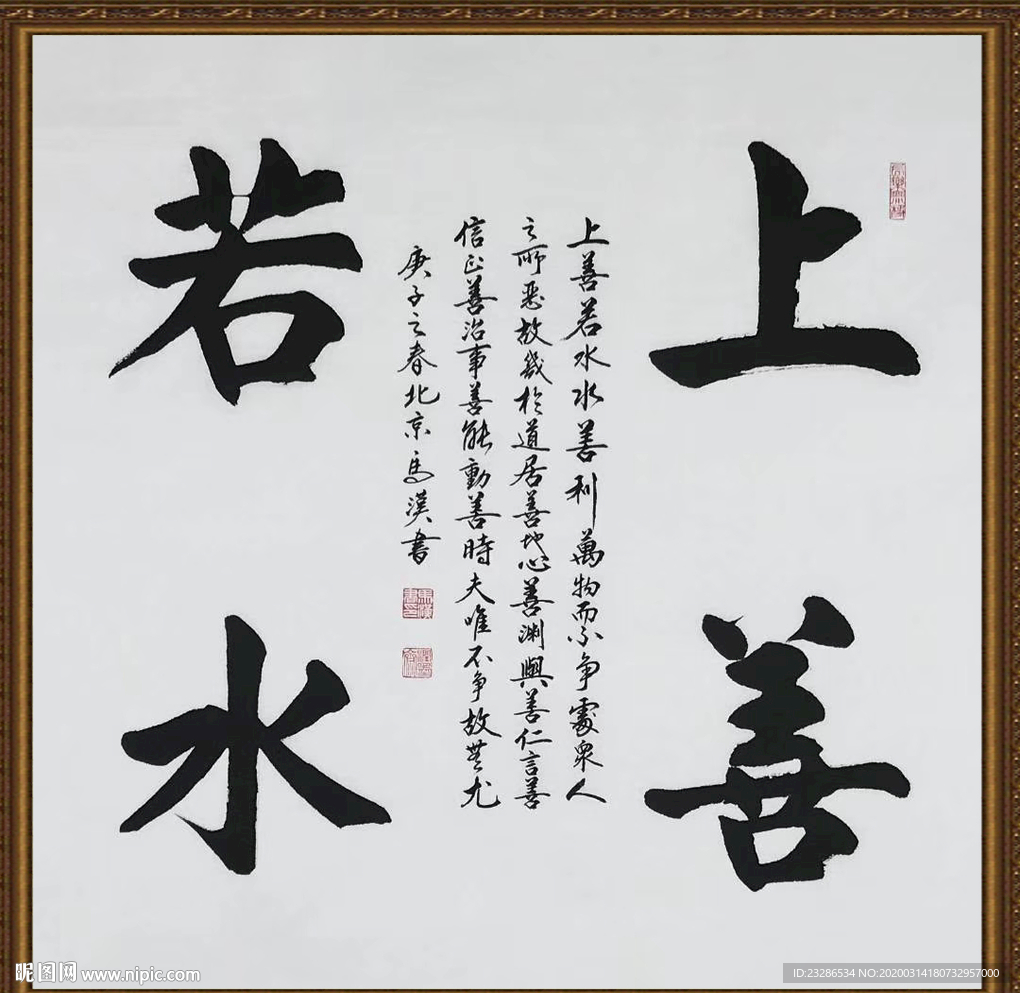 上善
若水
上善若水水善利萬物而不争處衆人
之所惡故幾於道居善地心善淵與善仁言善
信正善治事善能動善時夫唯不争故無尤
庚子之春北京馬漢書
昵图网 www.nipic.com
ID:23286534 NO:20200314180732957000